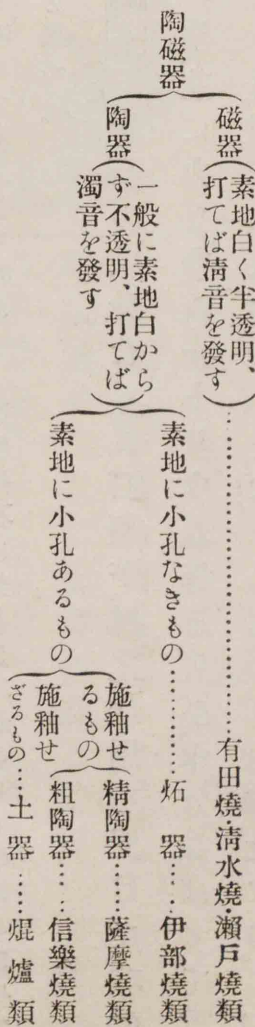 陶磁器
磁器(素地白く半透明、打てば淸音を發す)……有田燒・淸水燒・瀨戶燒類
陶器(一般に素地白からず不透明、打てば濁音を發す)
素地に小孔なきもの……炻器……伊部燒類
素地に小孔あるもの
施釉せるもの
精陶器……薩摩燒類
粗陶器……信樂燒類
施釉せざるもの…土器……焜爐類